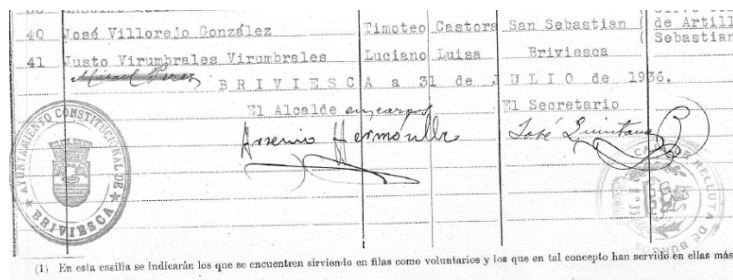 de Artill
40 José Villorejo González Timoteo Castora San Sebastian ( Sebastian
41 Justo Virumbrales Virumbrales Luciano Luisa Briviesca
BRIVIESCA a 31 de JULIO de 1936.
El Alcalde en cargos El Secretario
Arsenio Hermosilla José Quintana
AYUNTAMIENTO CONSTITUCIONAL DE BRIVIESCA
CAJA DE RECLUTA DE BURGOS
(1) En esta casilla se indicarán los que se encuentren sirviendo en filas como voluntarios y los que en tal concepto han servido en ellas más